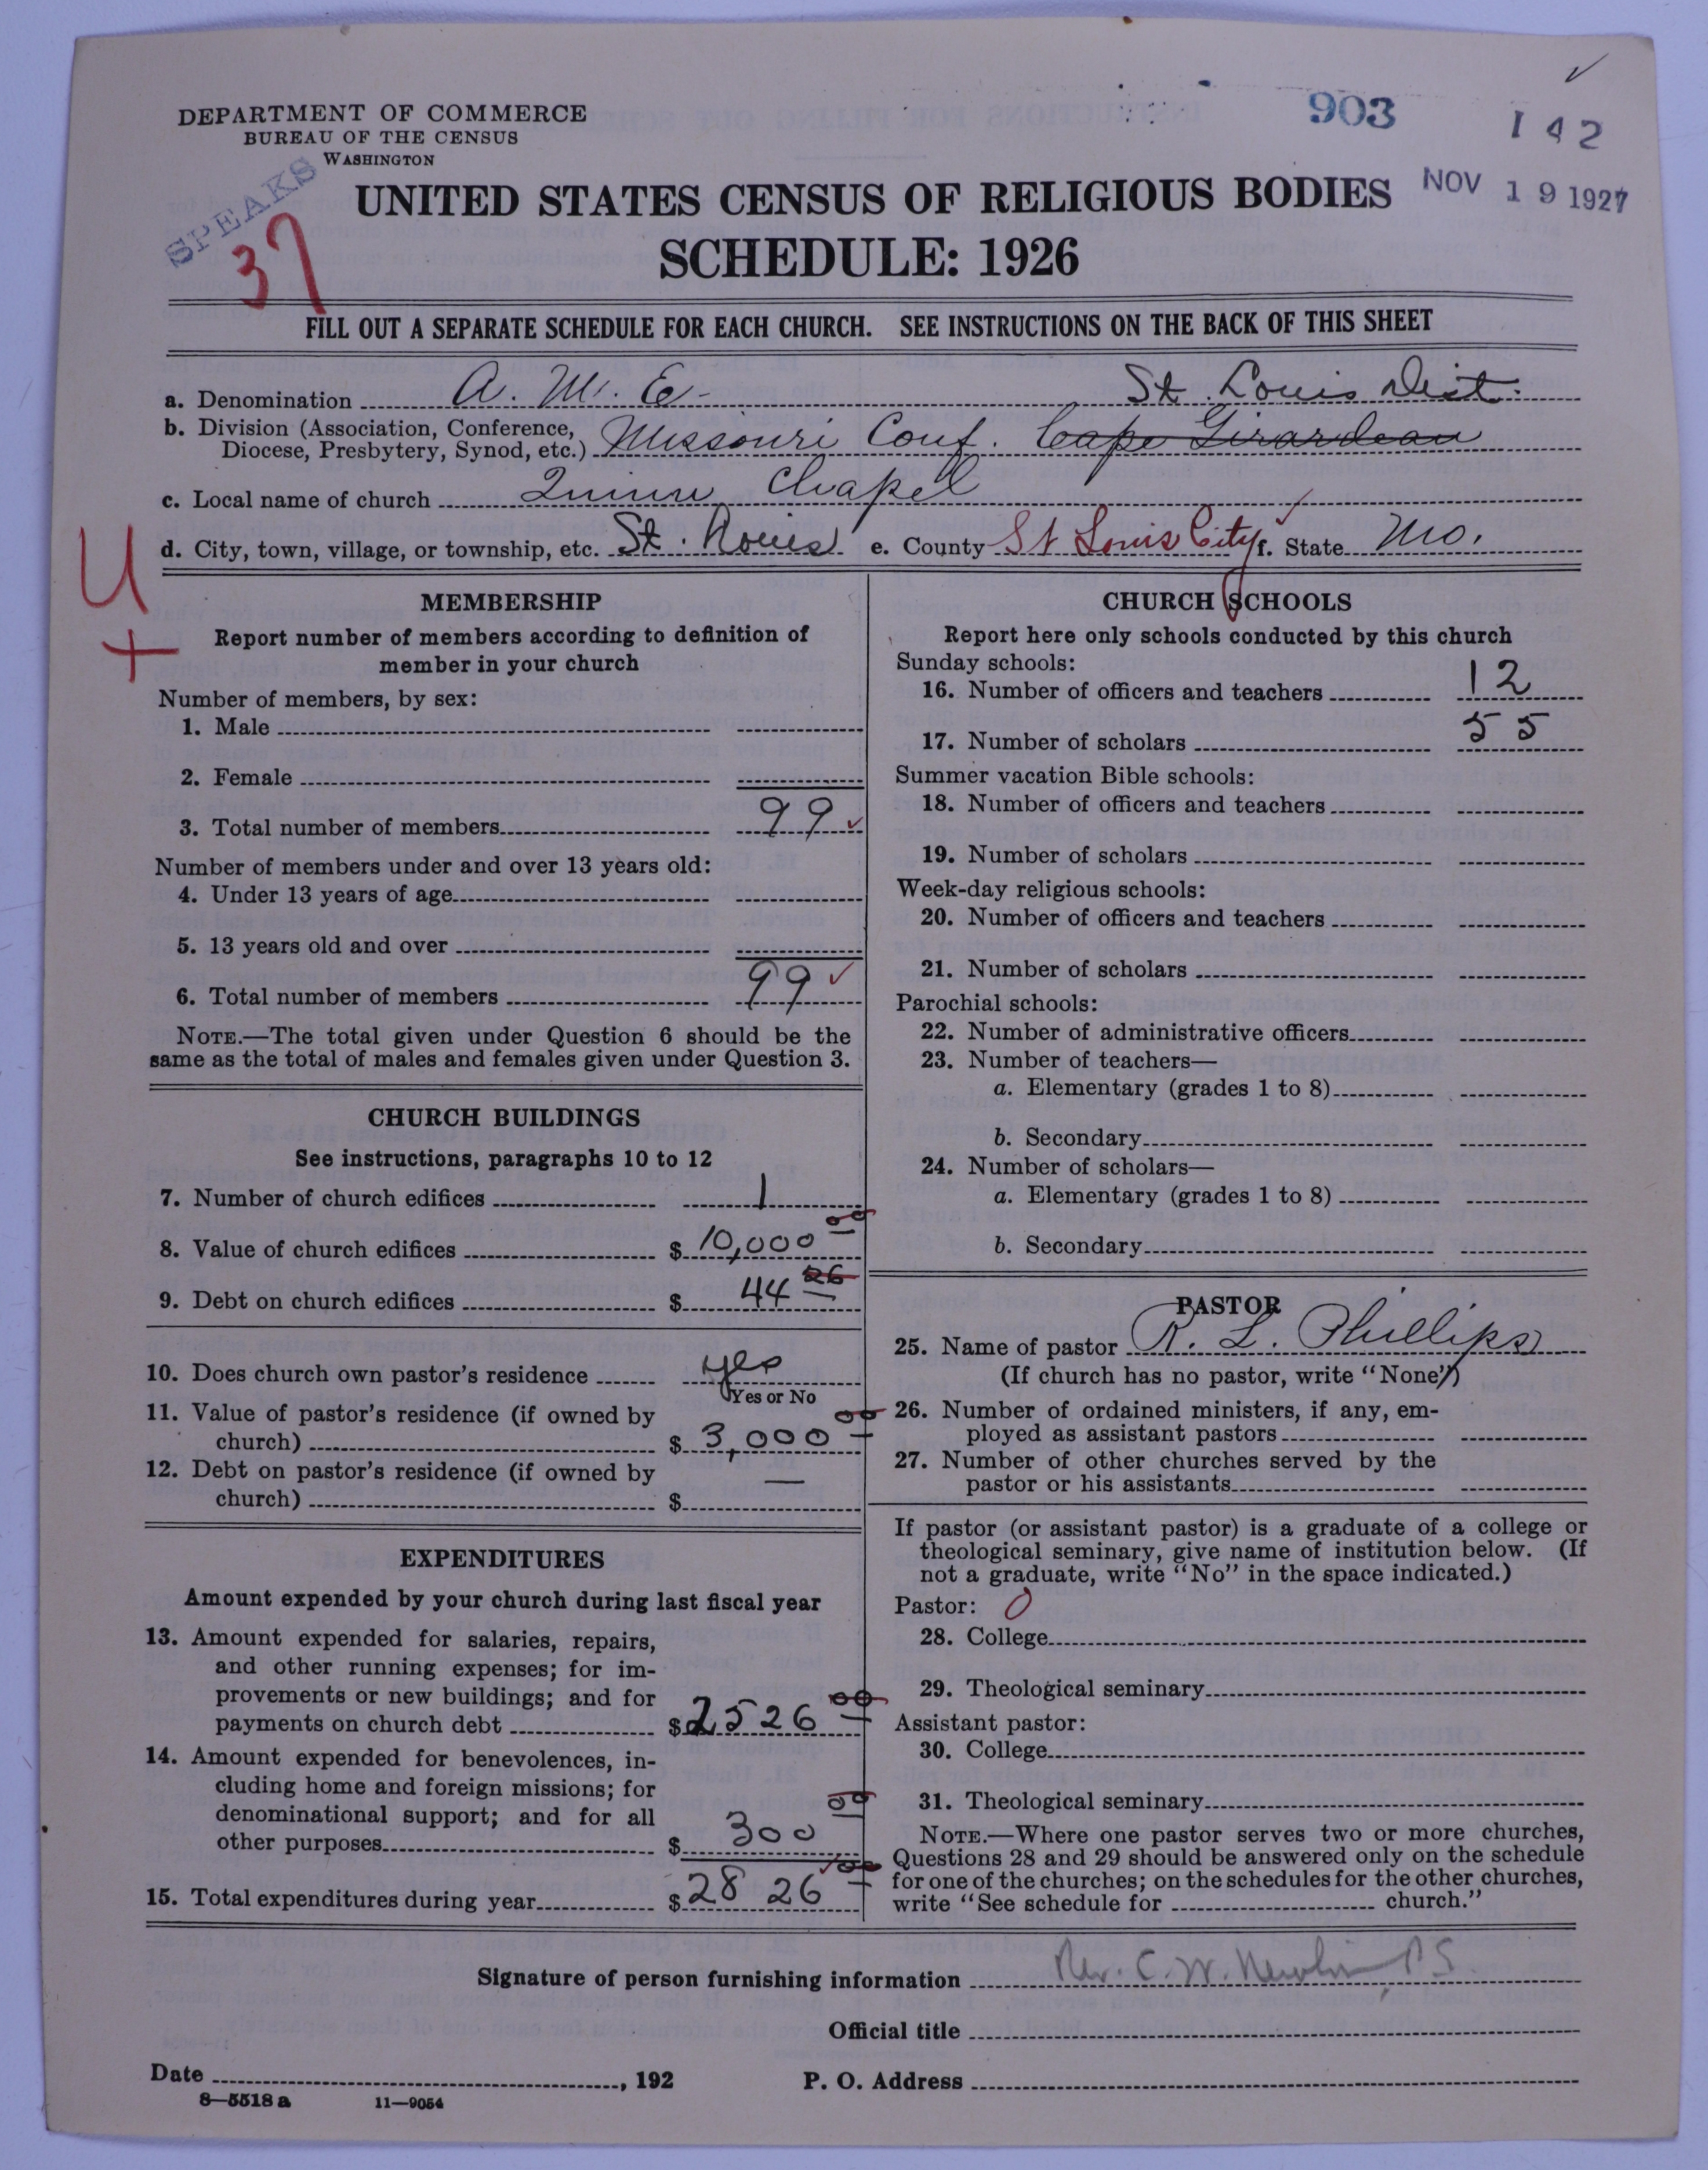 DEPARTMENT OF COMMERCE
BUREAU OF THE CENSUS
WASHINGTON
903
142
NOV 19 1927
SPEAKS
37
UNITED STATES CENSUS OF RELIGIOUS BODIES
SCHEDULE: 1926
FILL OUT A SEPARATE SCHEDULE FOR EACH CHURCH. SEE INSTRUCTIONS ON THE BACK OF THIS SHEET
a. Denomination A. M. E- St. Louis Dist.
b. Division (Association, Conference,
Diocese, Presbytery, Synod, etc.) Missouri Conf. Cape Girardeau
c. Local name of church Quinn Chapel
d. City, town, village, or township, etc. St. Louis e. County St Louis City f. State Mo.
U
+
MEMBERSHIP
Report number of members according to definition of
member in your church
Number of members, by sex:
1. Male
2. Female
3. Total number of members 99
Number of members under and over 13 years old:
4. Under 13 years of age
5. 13 years old and over
6. Total number of members 99
NOTE.—The total given under Question 6 should be the
same as the total of males and females given under Question 3.
CHURCH BUILDINGS
See instructions, paragraphs 10 to 12
7. Number of church edifices 1
8. Value of church edifices $ 10,000 00
9. Debt on church edifices $ 44 26
10. Does church own pastor's residence yes
Yes or No
11. Value of pastor's residence (if owned by
church) $ 3,000 00
12. Debt on pastor's residence (if owned by
church) $ —
EXPENDITURES
Amount expended by your church during last fiscal year
13. Amount expended for salaries, repairs,
and other running expenses; for im-
provements or new buildings; and for
payments on church debt $ 2526 00
14. Amount expended for benevolences, in-
cluding home and foreign missions; for
denominational support; and for all
other purposes $ 300 00
15. Total expenditures during year $ 2826 00
CHURCH SCHOOLS
Report here only schools conducted by this church
Sunday schools:
16. Number of officers and teachers 12
17. Number of scholars 55
Summer vacation Bible schools:
18. Number of officers and teachers
19. Number of scholars
Week-day religious schools:
20. Number of officers and teachers
21. Number of scholars
Parochial schools:
22. Number of administrative officers
23. Number of teachers—
a. Elementary (grades 1 to 8)
b. Secondary
24. Number of scholars—
a. Elementary (grades 1 to 8)
b. Secondary
PASTOR
25. Name of pastor R. L. Phillips
(If church has no pastor, write "None")
26. Number of ordained ministers, if any, em-
ployed as assistant pastors
27. Number of other churches served by the
pastor or his assistants
If pastor (or assistant pastor) is a graduate of a college or
theological seminary, give name of institution below. (If
not a graduate, write "No" in the space indicated.)
Pastor: 0
28. College
29. Theological seminary
Assistant pastor:
30. College
31. Theological seminary
NOTE.—Where one pastor serves two or more churches,
Questions 28 and 29 should be answered only on the schedule
for one of the churches; on the schedules for the other churches,
write "See schedule for church."
Signature of person furnishing information Rev. C. W. Newlin P S
Official title
Date , 192 P. O. Address
8—5518 a 11—9054